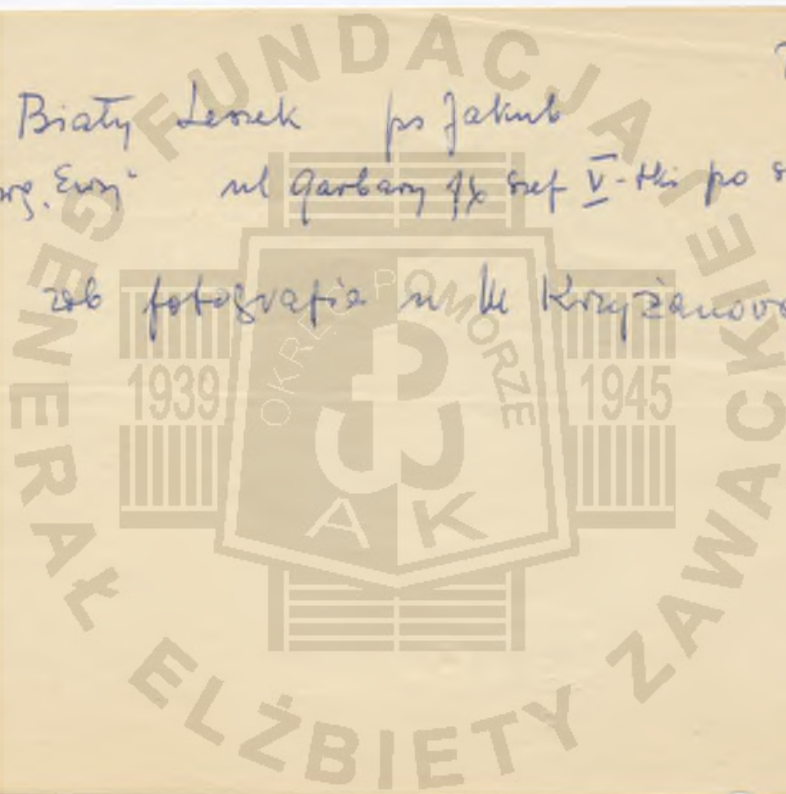 Biały Leszek ps Jakub
ul Garbary szef V-tki po
zob fotografia u
FUNDACJA GENERAŁ ELŻBIETY ZAWACKIEJ
OKRĘG POMORZE
1939 1945
A K